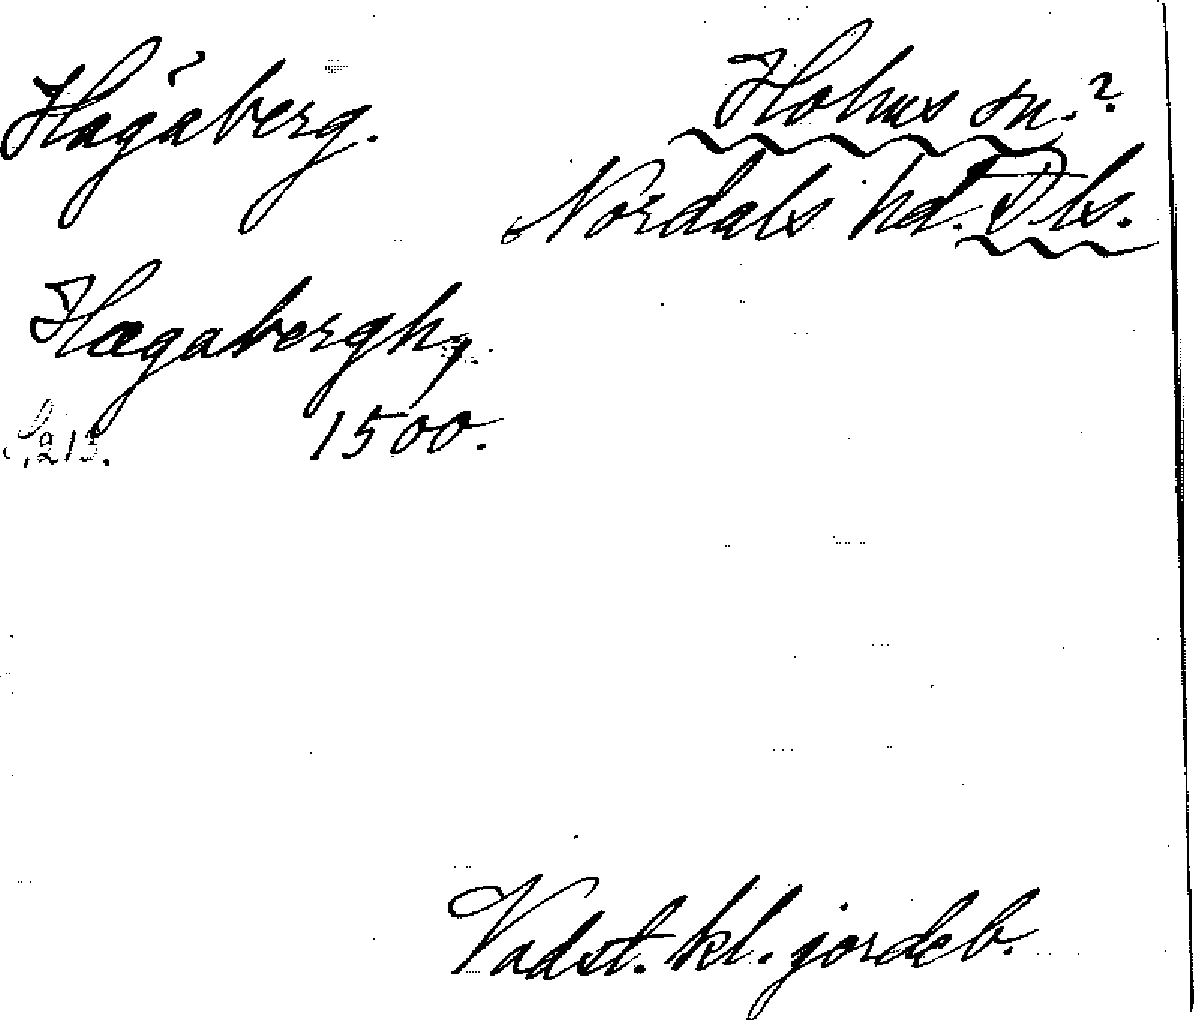 Hagaberg.
Holms sn.?
Nordals hd. Dls.
Hægaberghy.
S. 213. 1500.
Vadst. kl. jordeb.